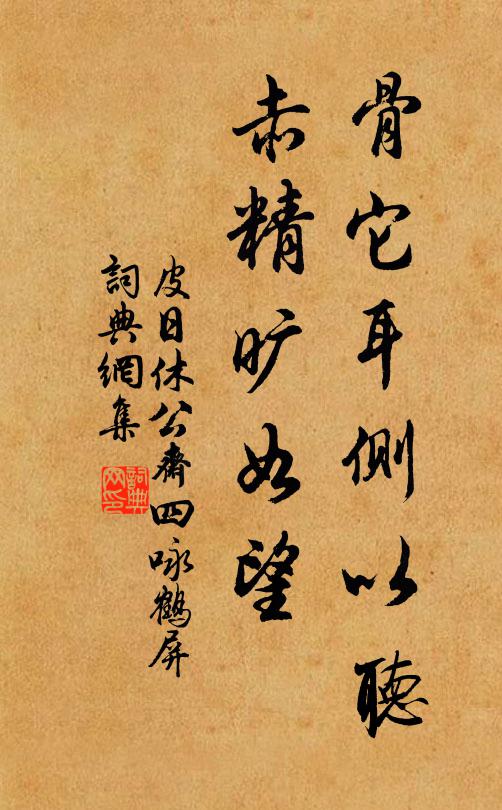 骨它耳側以聽
赤精旷如望
皮日休公齋四咏鶴屏
詞典網集
詞典网印